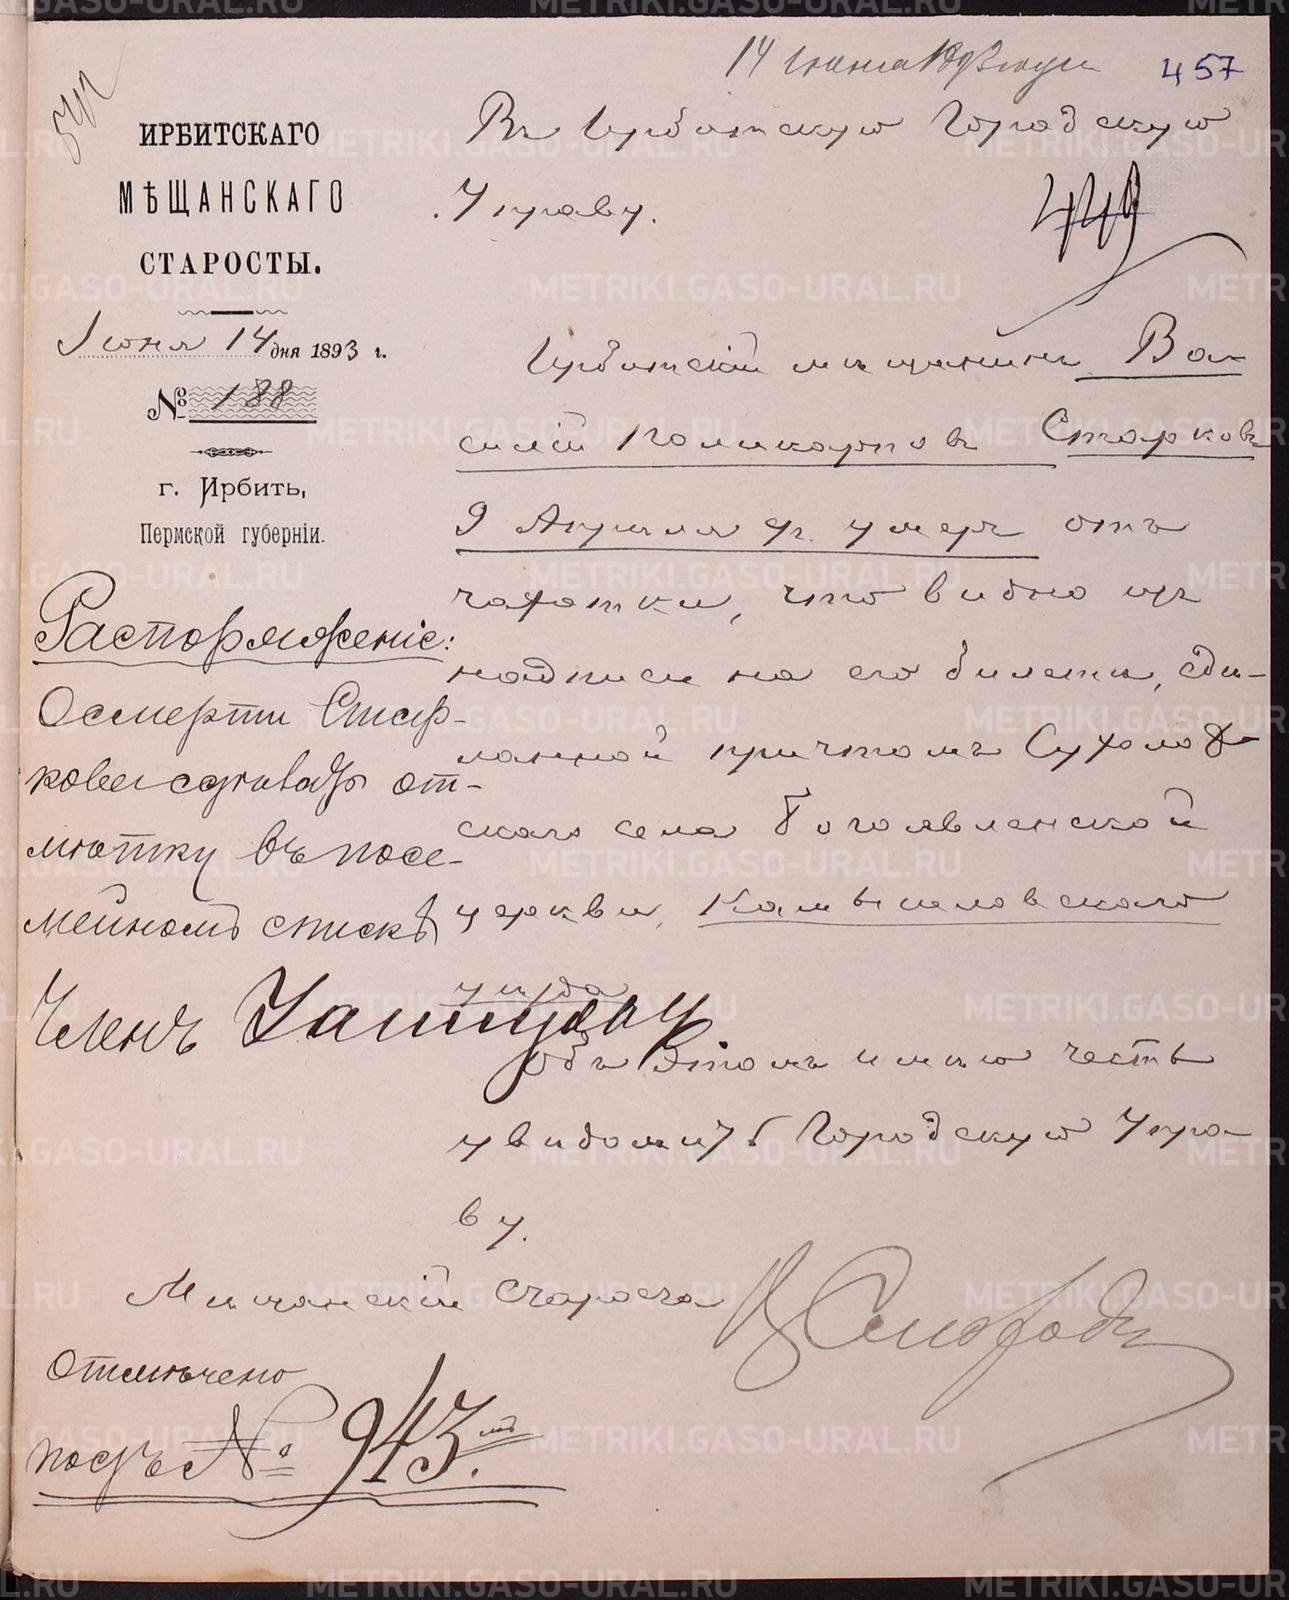 14 июня 1893 года
457
ИРБИТСКАГО
МѢЩАНСКАГО
СТАРОСТЫ.
Іюня 14 дня 1893 г.
№ 188
г. Ирбить,
Пермской губерніи.
Въ Ирбитскую Городскую
Управу.
449
Ирбитскій мѣщанинъ Ва-
силій Поликарповъ Старковъ
9 Апрѣля с/г. умеръ отъ
чахотки, что видно изъ
надписи на его билетѣ, сдѣ-
ланной причтомъ Сухолож-
скаго села Богоявленской
церкви, Камышловскаго
уѣзда
Объ этомъ имѣю честь
увѣдомить Городскую Упра-
ву.
Мѣщанскій Староста
Распоряженіе:
О смерти Стар-
кова сдѣлать от-
мѣтку въ посе-
мейномъ спискѣ
Членъ
Отмѣчено
подъ № 943.мъ
METRIKI.GASO-URAL.RU